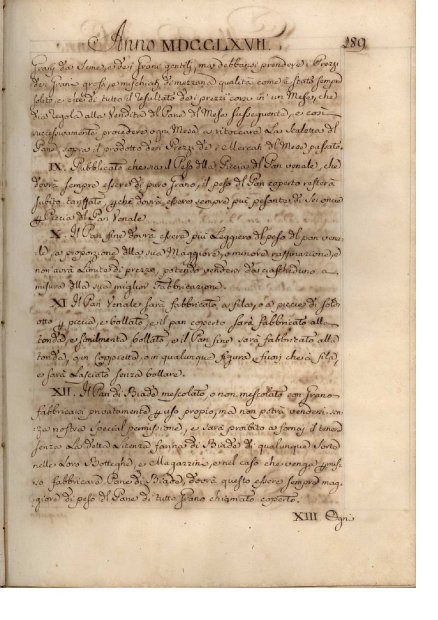 Anno MDCCLXVII. 289
Grani da Seme, e dei Grani gentili, ma debbansi prendere i Prezzi
dei Grani grossi, e mischiati di mezzana qualità come è stato sempre
solito, e che di tutto il resultato dei prezzi corsi in un Mese, che
dia regola alla Vendita del Pane del Mese susseguente, e così
successivamente procedere ogni Mese a ritoccare La Scaletta del
Pane, sopra il prodotto dei Prezzi de i Mercati del Mese passato.
IX. Pubblicato che sarà il Peso della Piccia del Pan venale, che
dovrà sempre essere di puro Grano, il peso del Pan coperto resterà
subito tariffato, perchè dovrà essere sempre più pesante di Sei once
per Piccia del Pan Venale.
X. Il Pan fine dovrà essere più Leggiero del peso del pan vena-
le, a proporzione della sua Maggiore, o minore raffinazione, e
non avrà Limite di prezzo, potendo vendersi da ciascheduno a
misura della sua miglior Fabbricazione.
XI. Il Pan Venale sarà fabbricato a fila, o a piccie di Soldi
otto per piccia, e bollato, e il pan coperto sarà fabbricato alla
tonda, e similmente bollato, e il Pan fine sarà fabbricato alla
tonda, in Coppietta, in qualunque figura, fuori che a fila,
e sarà Lasciato senza bollare.
XII. Il Pan di Biade mescolato, o non mescolato con Grano
fabbricarsi privatamente per uso proprio, ma non potrà vendersi sen-
za nostra special permissione, e sarà proibito a fornai il tenere
senza La detta Licenza farina di Biade di qualunque sorte
nelle Loro Botteghe, e Magazzini, e nel caso che venga permes-
so fabbricare Pane di Biade, dovrà questo essere sempre mag-
giore di peso del Pane di tutto Grano chiamato coperto.
XIII Ogni